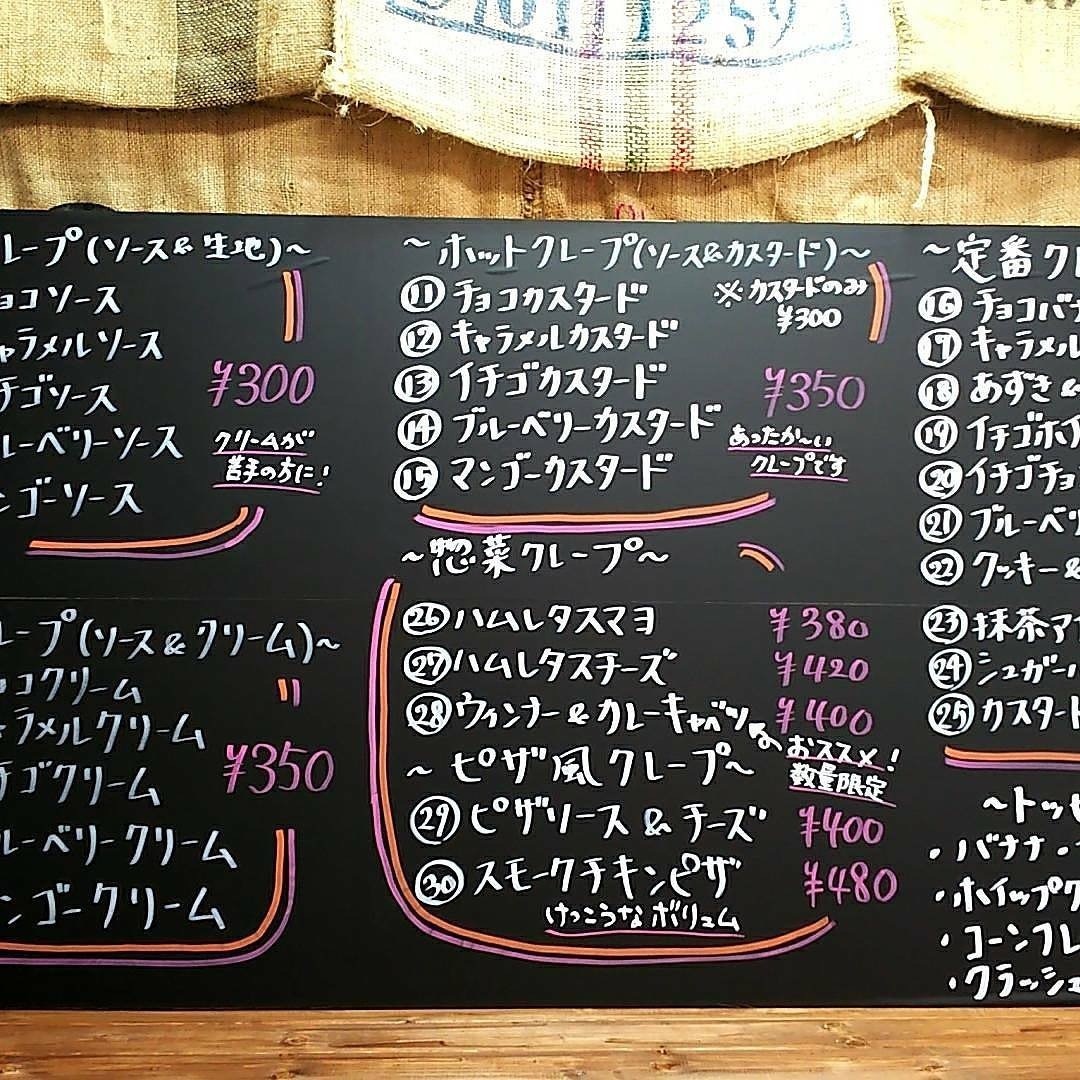 レープ(ソース&生地)~
ョコソース
ャラメルソース
チゴソース
¥300
ルーベリーソース
クリームが
苦手の方に!
ンゴーソース
レープ(ソース&クリーム)~
ョコクリーム
ャラメルクリーム
チゴクリーム
¥350
ルーベリークリーム
ンゴークリーム
~ホットクレープ(ソース&カスタード)~
⑪チョコカスタード
※カスタードのみ
¥300
⑫キャラメルカスタード
⑬イチゴカスタード
¥350
⑭ブルーベリーカスタード
あったか~い
クレープです
⑮マンゴーカスタード
~惣菜クレープ~
㉖ハムレタスマヨ ¥380
㉗ハムレタスチーズ ¥420
㉘ウィンナー&カレーキャベツ ¥400
おススメ!
数量限定
~ピザ風クレープ~
㉙ピザソース&チーズ ¥400
㉚スモークチキンピザ ¥480
けっこうなボリュム
~定番ク
⑯チョコバ
⑰キャラメル
⑱あずき&
⑲イチゴホ
⑳イチゴチョ
㉑ブルーベ
㉒クッキー&
㉓抹茶ア
㉔シュガー
㉕カスタード
~トッ
・バナナ・
・ホイップク
・コーンフレ
・クラッシュ